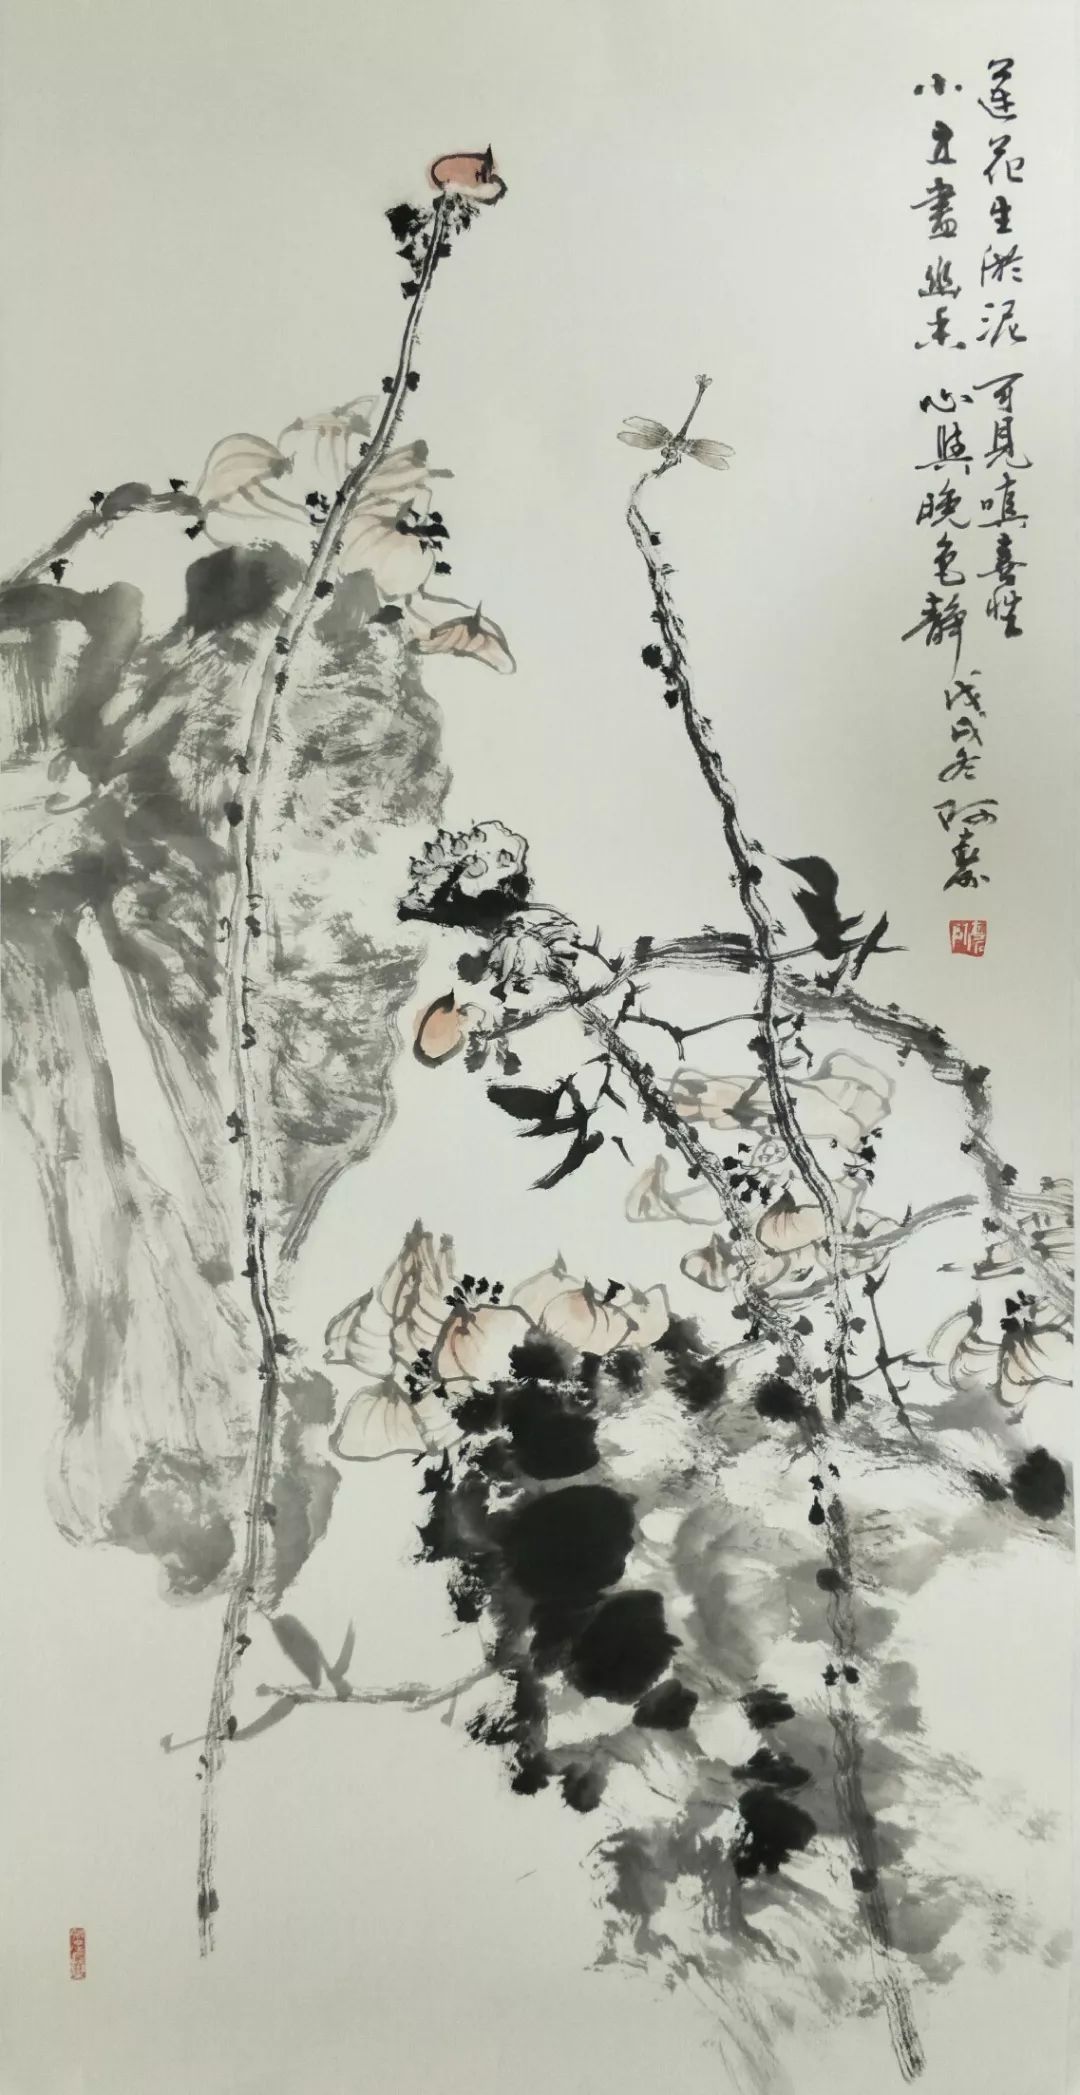 莲花生淤泥 可見嗔喜性
小立盡幽香 心與晚色静
戊戌冬 阿春